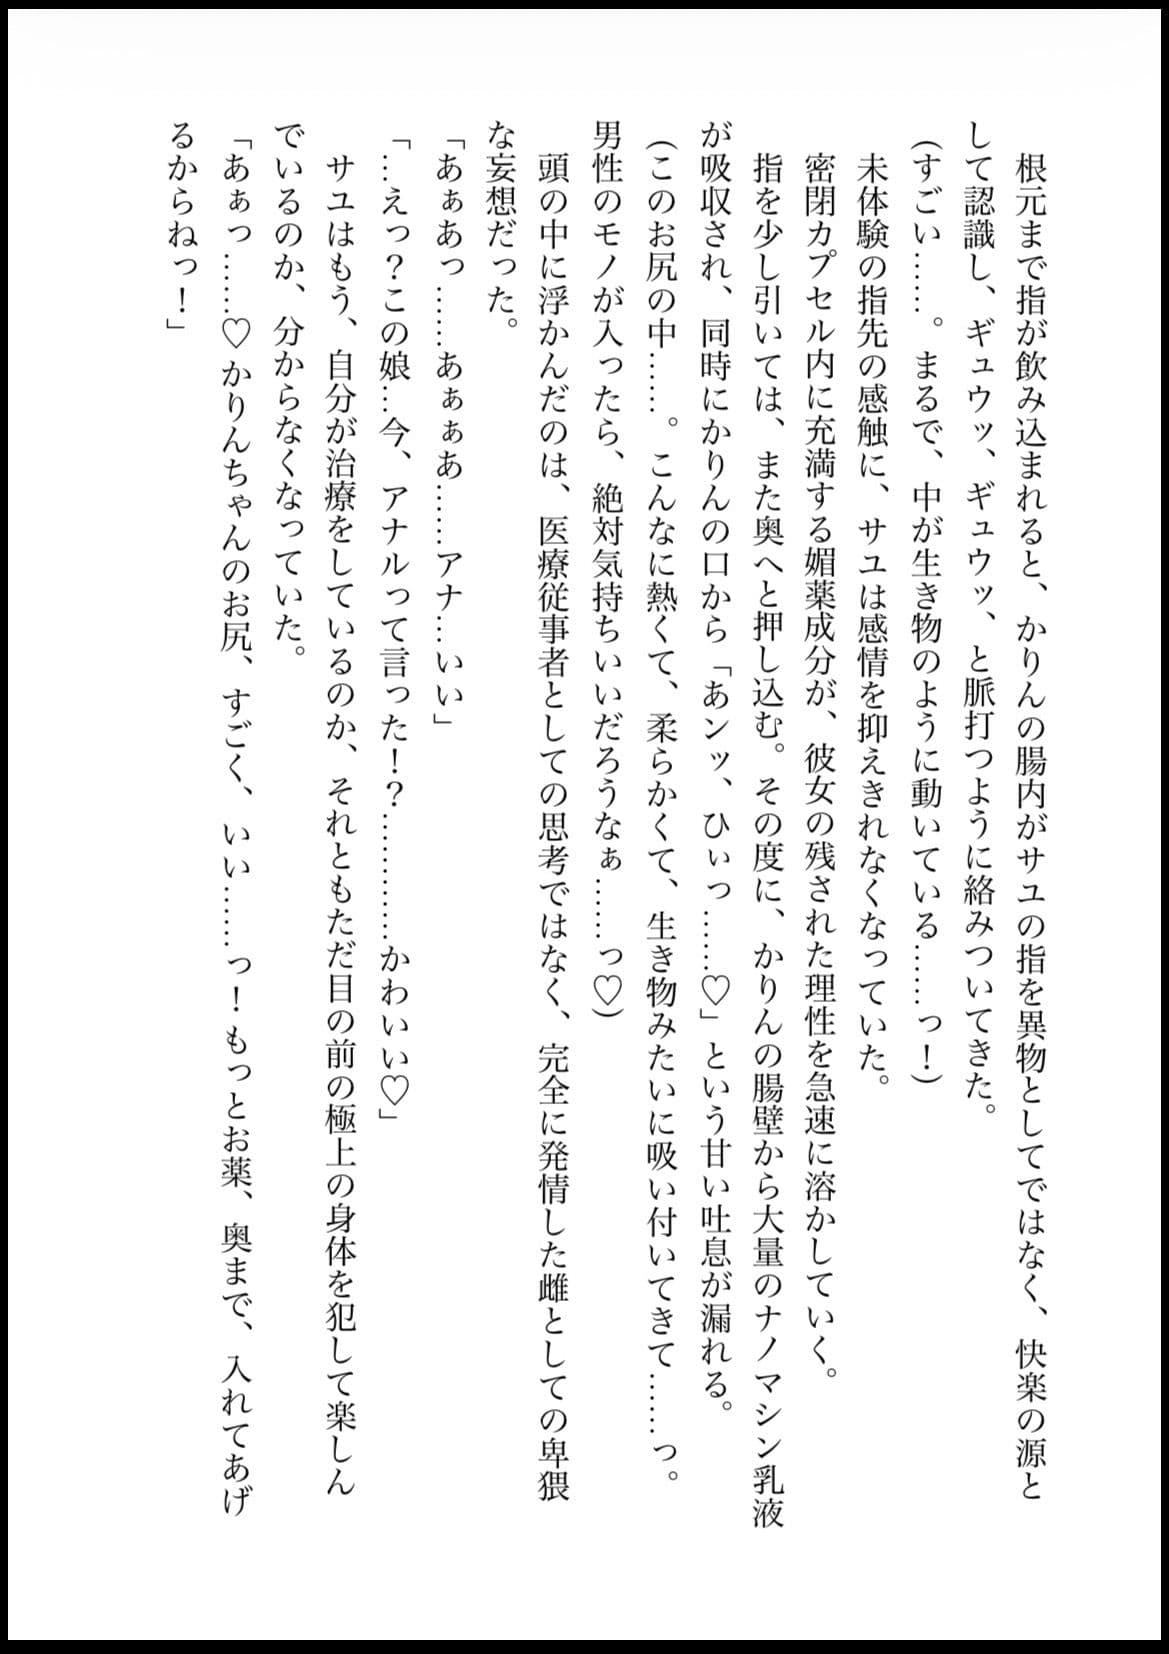 根元まで指が飲み込まれると、かりんの腸内がサユの指を異物としてではなく、快楽の源と
して認識し、ギュウッ、ギュウッ、と脈打つように絡みついてきた。
(すごい……。まるで、中が生き物のように動いている……っ！)
　未体験の指先の感触に、サユは感情を抑えきれなくなっていた。
　密閉カプセル内に充満する媚薬成分が、彼女の残された理性を急速に溶かしていく。
　指を少し引いては、また奥へと押し込む。その度に、かりんの腸壁から大量のナノマシン乳液
が吸収され、同時にかりんの口から「あンッ、ひぃっ……♡」という甘い吐息が漏れる。
(このお尻の中……。こんなに熱くて、柔らかくて、生き物みたいに吸い付いてきて……っ。
男性のモノが入ったら、絶対気持ちいいだろうなぁ……っ♡)
　頭の中に浮かんだのは、医療従事者としての思考ではなく、完全に発情した雌としての卑猥
な妄想だった。
「あぁあっ……あぁぁあ……アナ…いい」
「…えっ？この娘…今、アナルって言った！？…………かわいい♡」
　サユはもう、自分が治療をしているのか、それともただ目の前の極上の身体を犯して楽しん
でいるのか、分からなくなっていた。
「あぁっ……♡かりんちゃんのお尻、すごく、いい……っ！もっとお薬、奥まで、入れてあげ
るからねっ！」